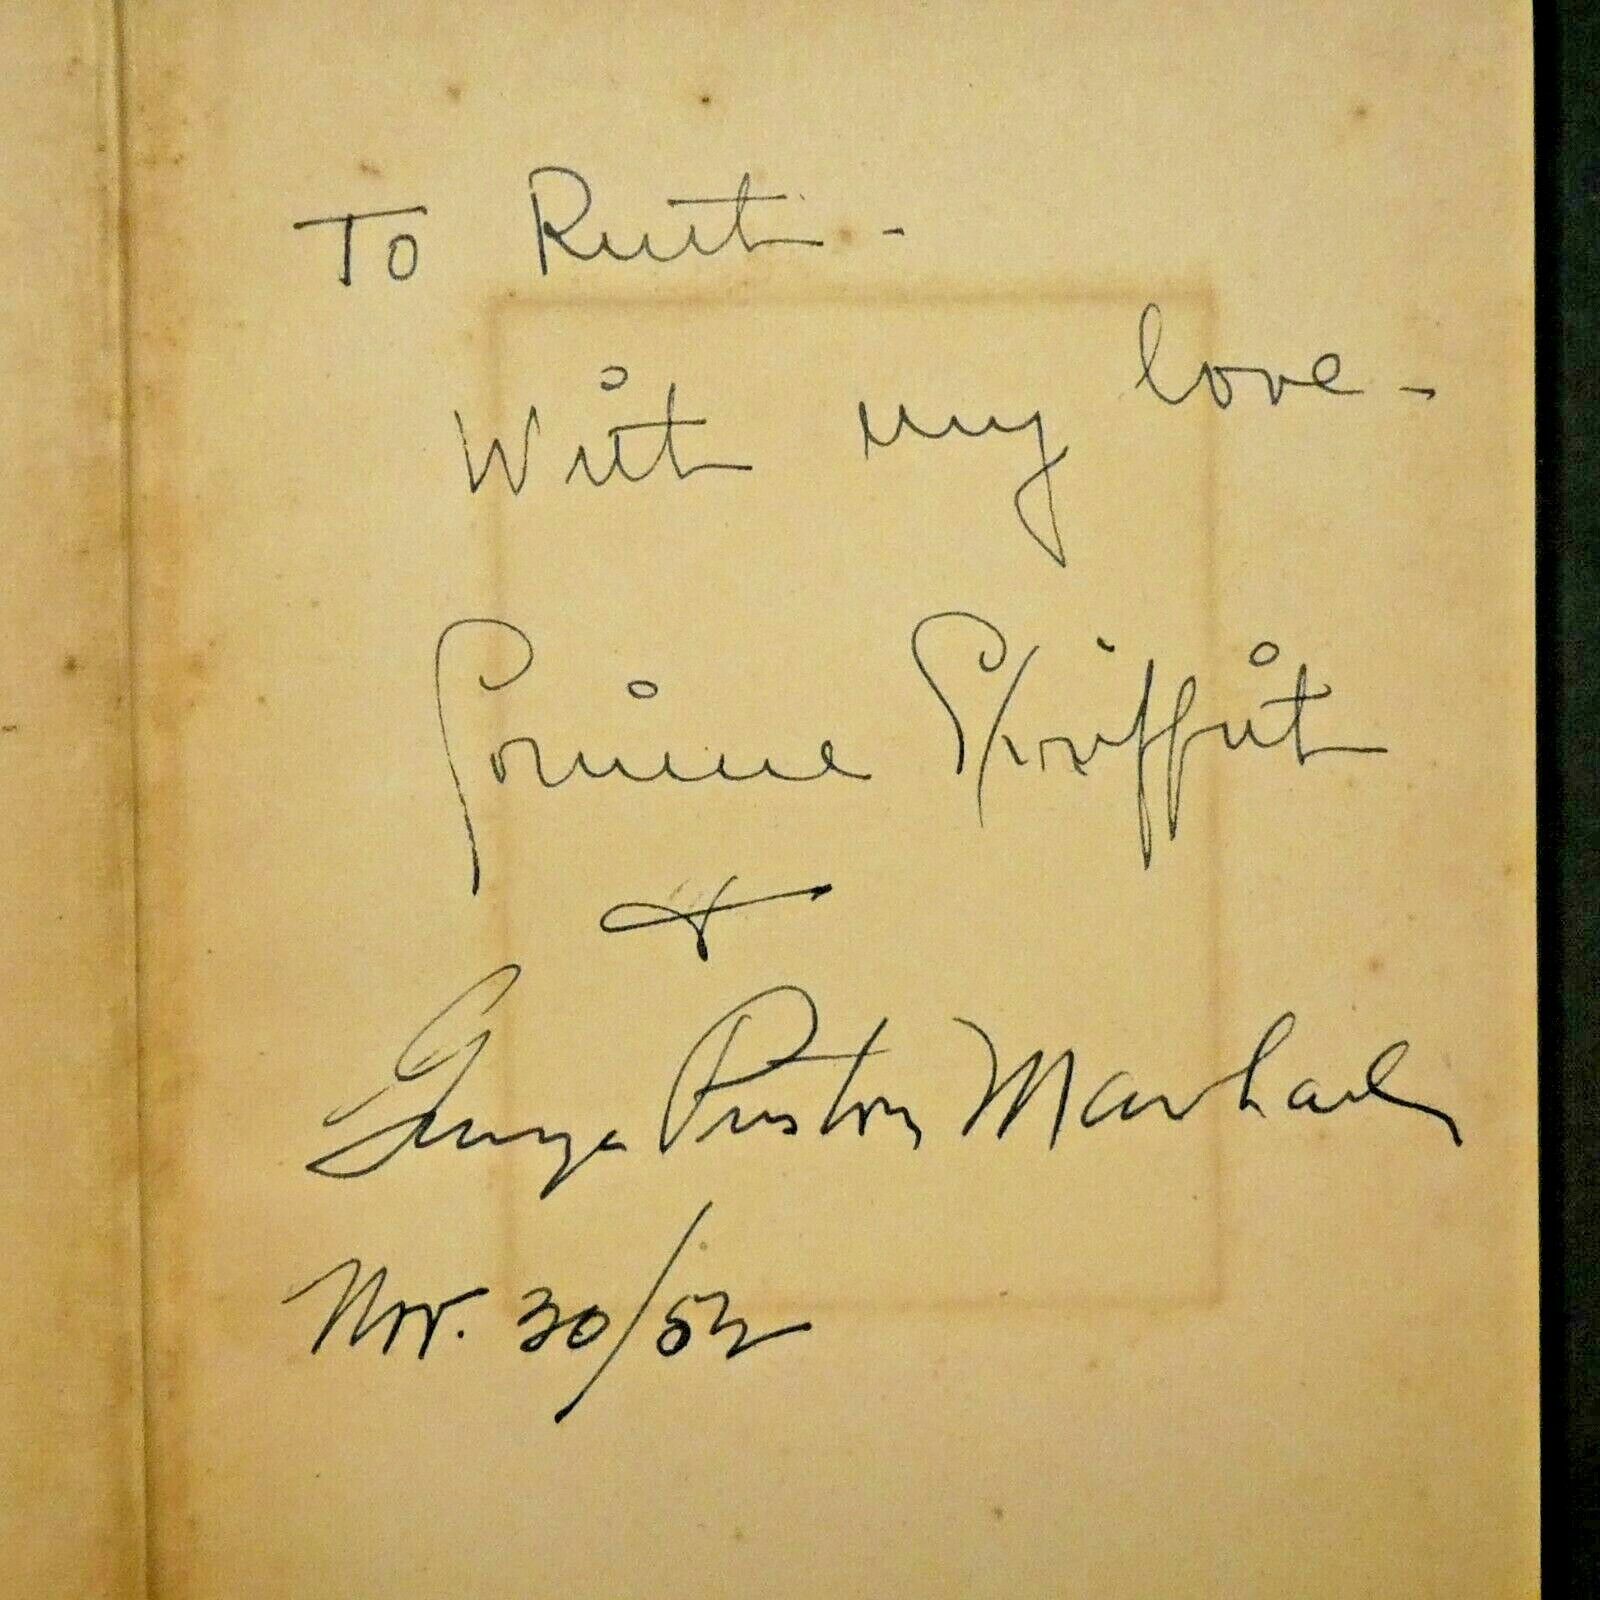 To Ruth -
With my love -
Corinne Griffith
+
George Preston Marshall
Nov. 30/52